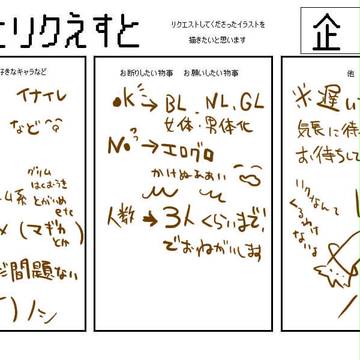 とリクえすと
リクエストしてくださったイラストを
描きたいと思います
企
好きなキャラなど
イナイレ
など
グリム
とがいぬ
etc
ム系
メ(マギカ
とか
だ問題ない
お断りしたい物事 お願いしたい物事
OK→BL.NL.GL
女体・男体化
No→エログロ
かけぬぁぁい
人数→3人くらいまで!
でおねがいします
他
※遅い
気長に待
お待ちして
リクなんて
くるわけ
ないよ